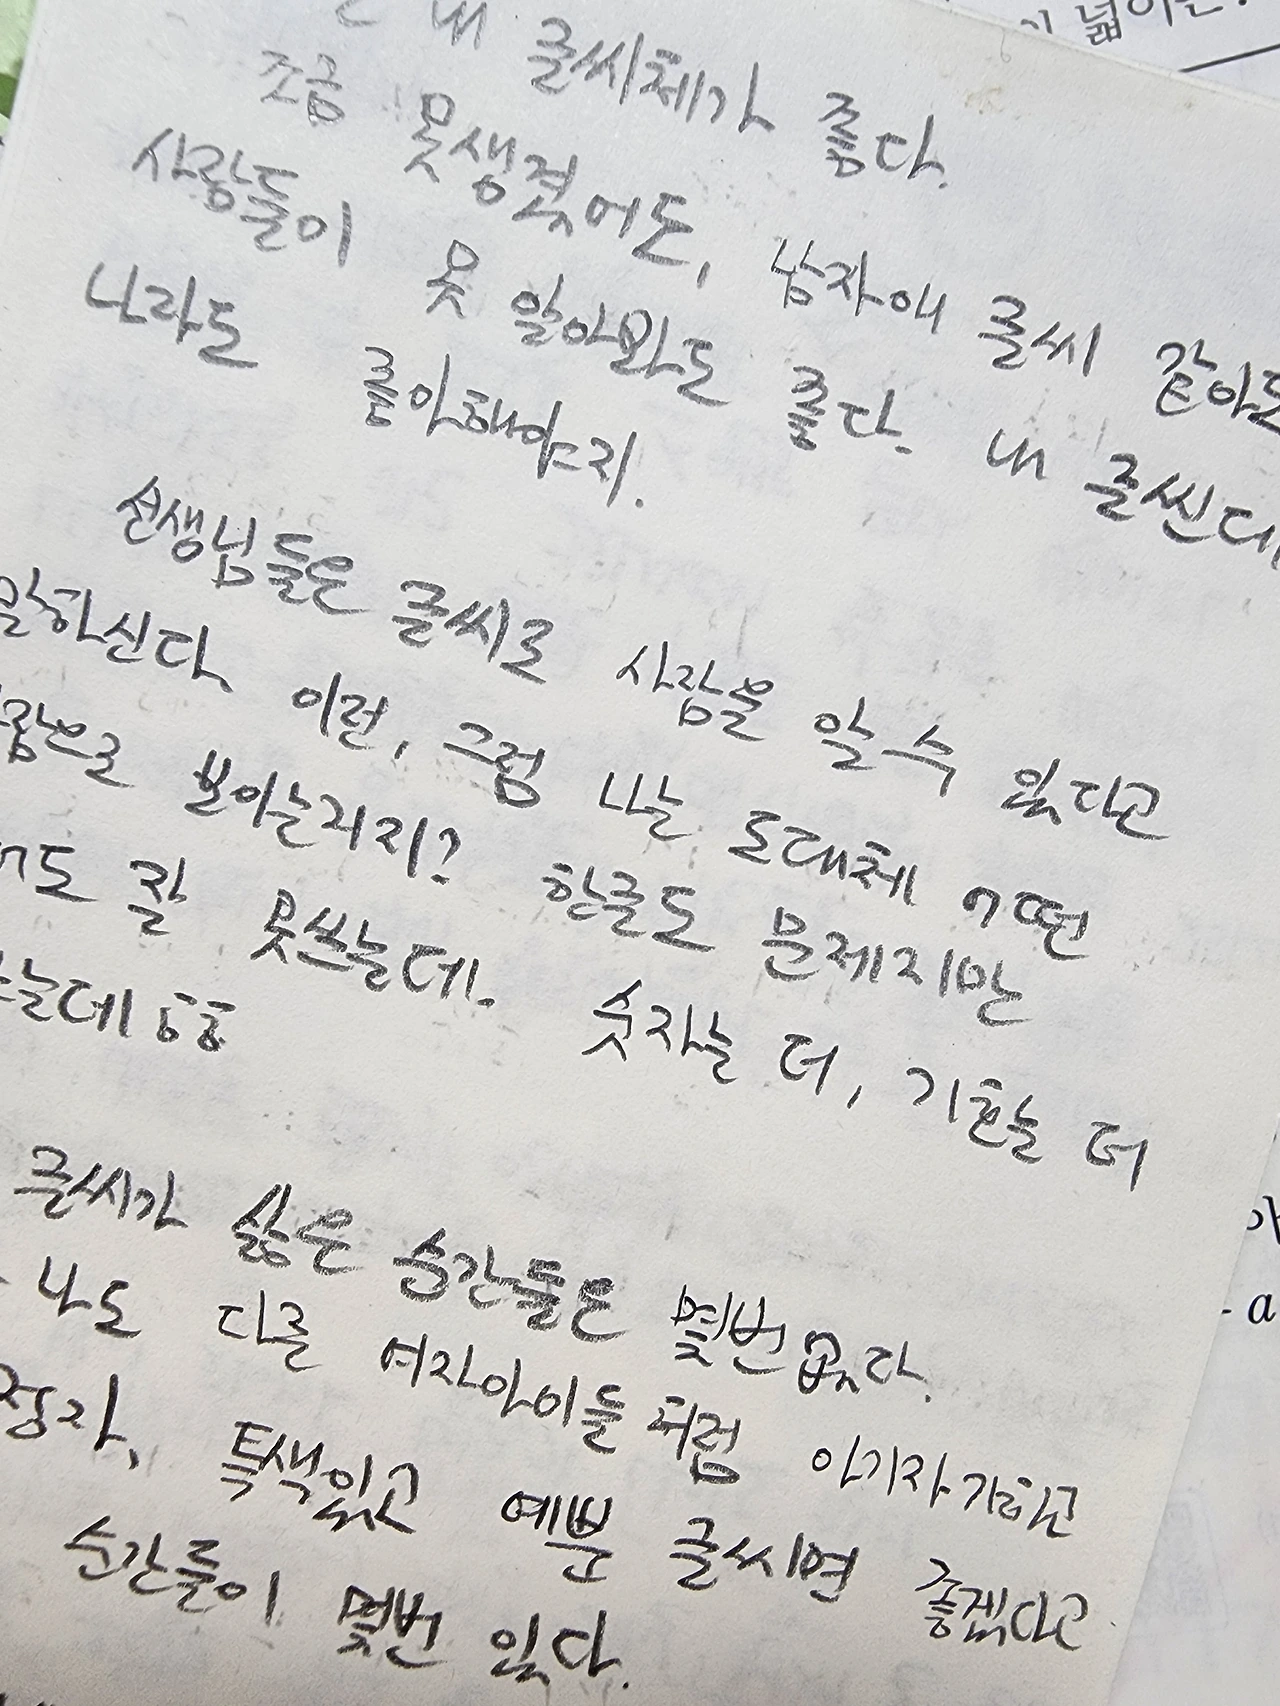 기 넓이는?
내 글씨체가 좋다.
조금 못생겼어도, 남자애 글씨 같아도
사람들이 못 알아봐도 좋다. 내 글씬데
나라도 좋아해야지.
선생님들은 글씨로 사람을 알 수 있다고
말하신다. 이런, 그럼 나는 도대체 어떤
사람으로 보이는거지? 한글도 문제지만
도 잘 못쓰는데. 숫자는 더, 기호는 더
는데 ㅎㅎ
글씨가 싫은 순간들도 몇번 있다.
나도 다른 여자아이들처럼 아기자기하고
정자, 특색있고 예쁜 글씨면 좋겠다고
순간들이 몇번 있다.
- a